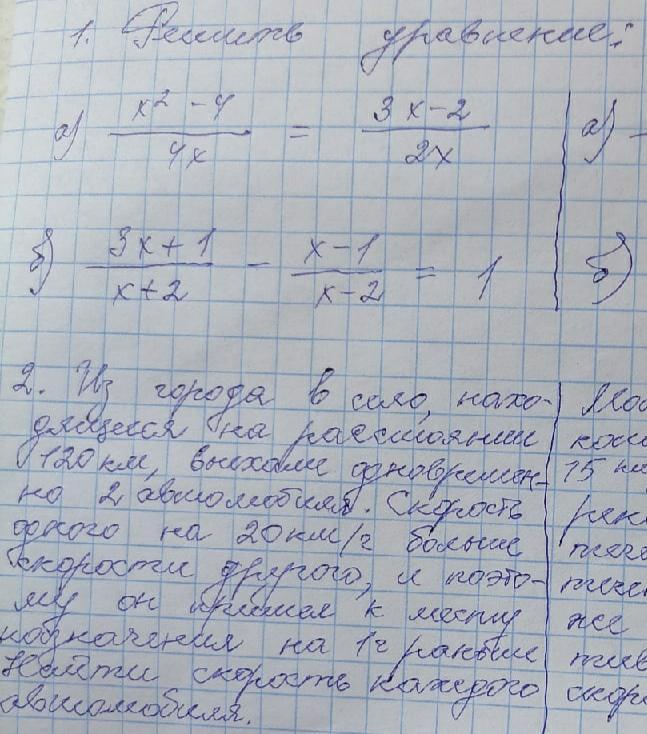 1. Решить уравнение:
а) (x² - 4)/(4x) = (3x - 2)/(2x)
а) -
б) (3x + 1)/(x + 2) - (x - 1)/(x - 2) = 1
б)
2. Из города в село, нахо-
дящееся на расстоянии
120 км, выехали одновремен-
но 2 автомобиля. Скорость
одного на 20км/г больше
скорости другого, и поэто-
му он пришел к месту
назначения на 1г раньше
Найти скорость каждого
автомобиля.
15
же